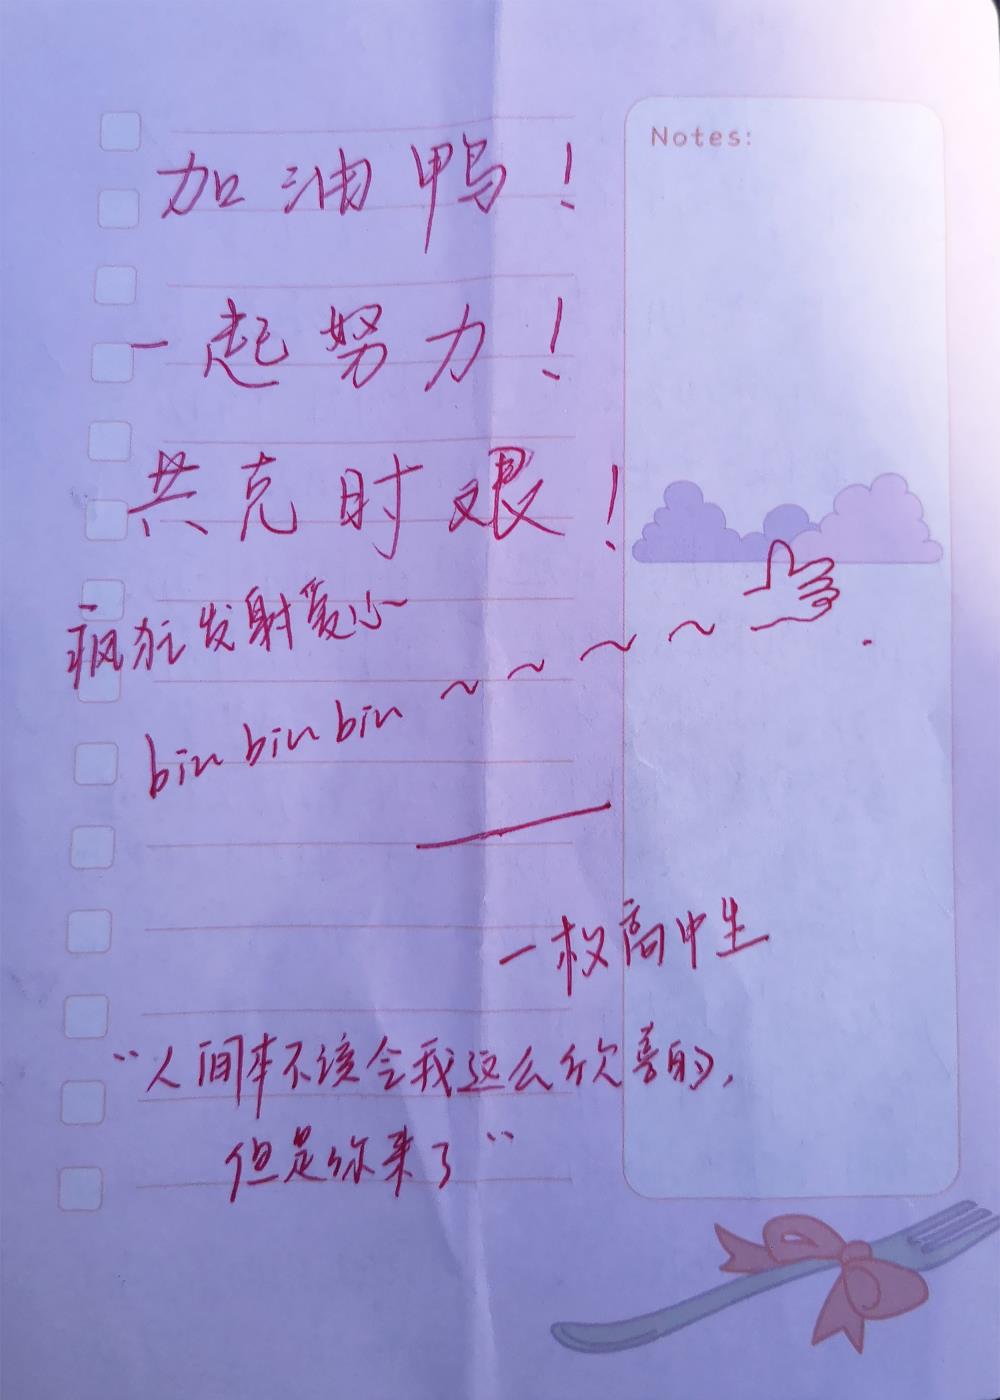 Notes:
加油鸭！
一起努力！
共克时艰！
疯狂发射爱心
biu biu biu ~ ~ ~ ~
一枚高中生
“人间本不该令我这么欣喜的，
但是你来了”